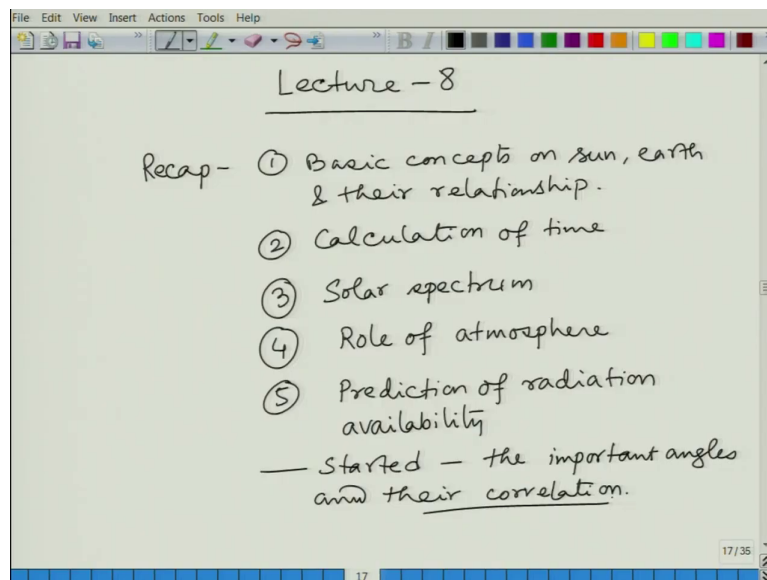 File Edit View Insert Actions Tools Help
Lecture - 8
Recap - ① Basic concepts on sun, earth
& their relationship.
② Calculation of time
③ Solar spectrum
④ Role of atmosphere
⑤ Prediction of radiation
availability
— Started — the important angles
and their correlation.
17/35
17